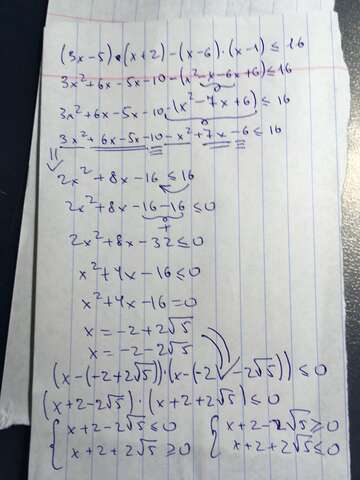 (3x-5)•(x+2)-(x-6)·(x-1)≤16
3x²+6x-5x-10-(x²-x-6x+6)≤16
3x²+6x-5x-10-(x²-7x+6)≤16
3x²+6x-5x-10-x²+7x-6≤16
2x²+8x-16≤16
2x²+8x-16-16≤0
2x²+8x-32≤0
x²+4x-16≤0
x²+4x-16=0
x=-2+2√5
x=-2-2√5
(x-(-2+2√5))·(x-(-2-2√5))≤0
(x+2-2√5)·(x+2+2√5)≤0
{x+2-2√5≤0 {x+2-2√5≥0
x+2+2√5≥0 x+2+2√5≤0